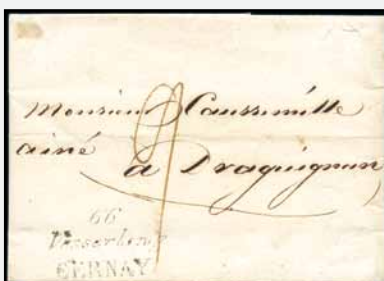 Monsieur Caussemille
ainé
à Draguignan
66
Wesserling
CERNAY